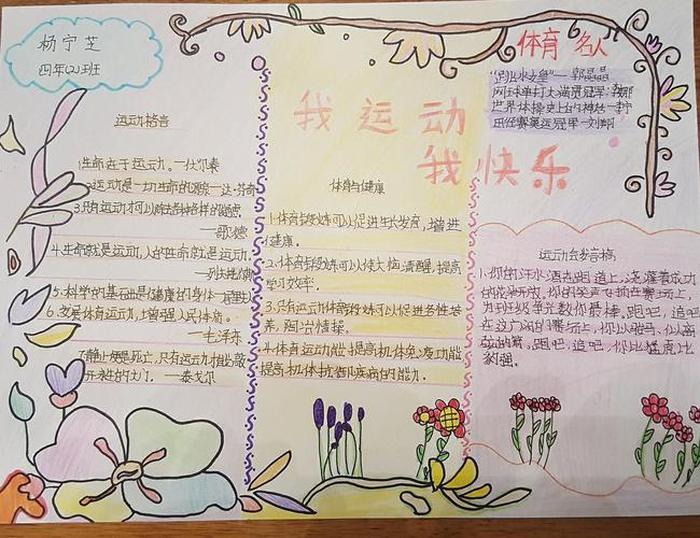 杨宁芝
四年(2)班
运动格言
1.生命在于运动。—伏尔泰
2.运动是一切生命的源泉—达·芬奇
3.只有运动才可以除去各种各样的疑虑。
—歌德
4.生命就是运动,人的生命就是运动。
—列夫·托尔斯泰
5.科学的基础是健康的身体—居里夫人
6.发展体育运动,增强人民体质。
—毛泽东
7.静止便是死亡,只有运动才能敲
开永生的大门。—泰戈尔
我运动
我快乐
体育与健康
1.体育锻炼可以促进生长发育,增进
健康。
2.体育锻炼可以使大脑清醒,提高
学习效率。
3.只有运动体育锻炼可以促进个性培
养,陶冶情操。
4.体育运动能提高机体免疫功能
提高机体抗衡疾病的能力。
体育名人
"跳水女皇"—郭晶晶
网球单打大满贯冠军:李娜
世界体操史上的神话—李宁
田径赛奥运冠军—刘翔
运动会发言稿
1.你的汗水洒在跑道上,浇灌着成功
的花朵开放。你的笑声飞扬在赛场上,
为班级争光数你最棒。跑吧,追吧
在这广阔的赛场上,你似骏马
跑吧,追吧,你比猛虎